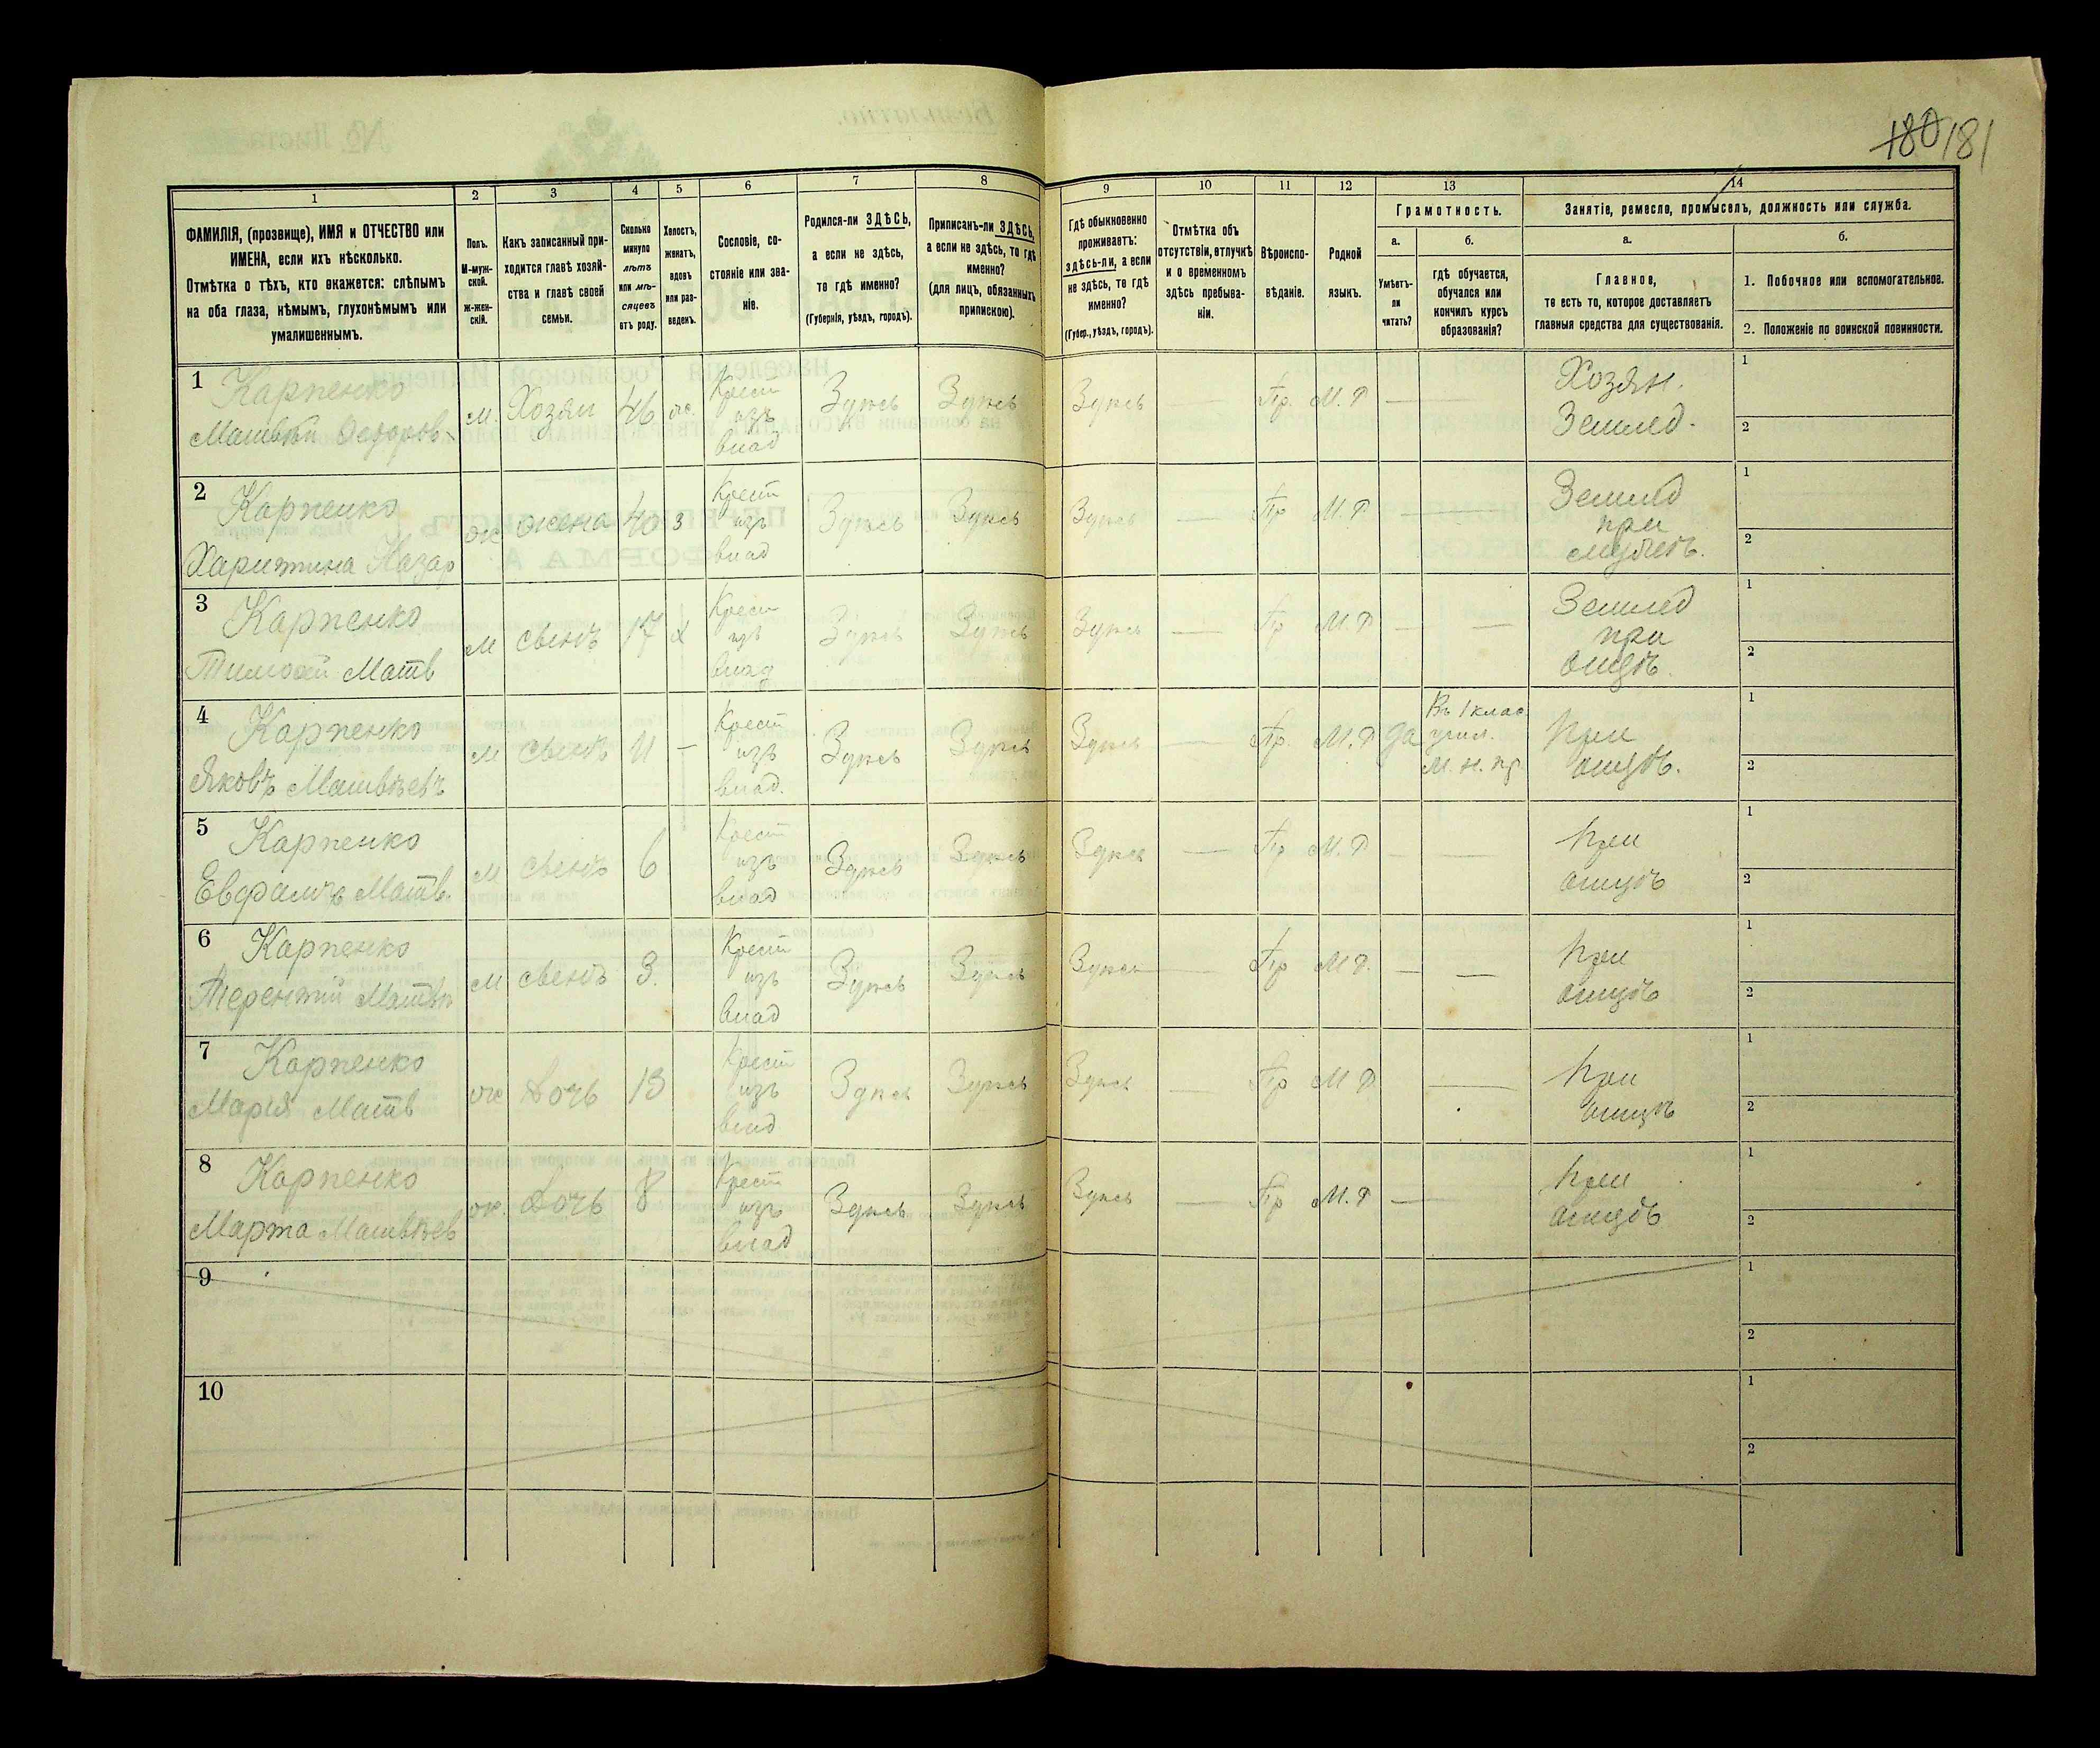 180 181
1 2 3 4 5 6 7 8 9 10 11 12 13 14
ФАМИЛІЯ, (прозвище), ИМЯ и ОТЧЕСТВО или
ИМЕНА, если ихъ нѣсколько.
Отмѣтка о тѣхъ, кто окажется: слѣпымъ
на оба глаза, нѣмымъ, глухонѣмымъ или
умалишеннымъ.
Полъ.
М-муж-
ской.
ж-жен-
скій.
Какъ записанный при-
ходится главѣ хозяй-
ства и главѣ своей
семьи.
Сколько
минуло
лѣтъ
или мѣ-
сяцевъ
отъ роду.
Холостъ,
женатъ,
вдовъ
или раз-
веденъ.
Сословіе, со-
стояніе или зва-
ніе.
Родился-ли ЗДѢСЬ,
а если не здѣсь,
то гдѣ именно?
(Губернія, уѣздъ, городъ).
Приписанъ-ли ЗДѢСЬ,
а если не здѣсь, то гдѣ
именно?
(для лицъ, обязанныхъ
припискою).
Гдѣ обыкновенно
проживаетъ:
здѣсь-ли, а если
не здѣсь, то гдѣ
именно?
(Губер., уѣздъ, городъ).
Отмѣтка объ
отсутствіи, отлучкѣ
и о временномъ
здѣсь пребыва-
ніи.
Вѣроиспо-
вѣданіе.
Родной
языкъ.
Грамотность.
а.
Умѣетъ-
ли
читать?
б.
гдѣ обучается,
обучался или
кончилъ курсъ
образованія?
Занятіе, ремесло, промыселъ, должность или служба.
а.
Главное,
то есть то, которое доставляетъ
главныя средства для существованія.
б.
1. Побочное или вспомогательное.
2. Положеніе по воинской повинности.
1 Карпенко
Матвѣй Федоров. м. Хозяи 46 ж. Крест изъ влад Здѣсь Здѣсь Здѣсь — Пр. М. Р — Хозян. Землед. 1 2
2 Карпенко
Харитина Назар ж жена 40 з Крест изъ влад Здѣсь Здѣсь Здѣсь — Пр М. Р. — Землед при мужѣ. 1 2
3 Карпенко
Тимофей Матв м сынъ 17 х Крест изъ влад Здѣсь Здѣсь Здѣсь — Пр М. Р — — Землед при отцѣ. 1 2
4 Карпенко
Яковъ Матвѣевъ м сынъ 11 — Крест изъ влад. Здѣсь Здѣсь Здѣсь — Пр. М. Р да Въ 1 клас. учил. М. н. пр. При отцѣ. 1 2
5 Карпенко
Матв. м сынъ 6 Крест изъ влад Здѣсь Здѣсь Здѣсь — Пр М. Р — — При отцѣ 1 2
6 Карпенко
Терентій Матвѣ м сынъ 3. Крест изъ влад Здѣсь Здѣсь Здѣсь — Пр М Р. — — При отцѣ 1 2
7 Карпенко
Марія Матв ж Дочь 13 Крест изъ влад Здѣсь Здѣсь Здѣсь — Пр М Р — При отцѣ 1 2
8 Карпенко
Марта Матвѣев ж. Дочь 8 Крест изъ влад Здѣсь Здѣсь Здѣсь — Пр М. Р — При отцѣ 1 2
9 1 2
10 1 2